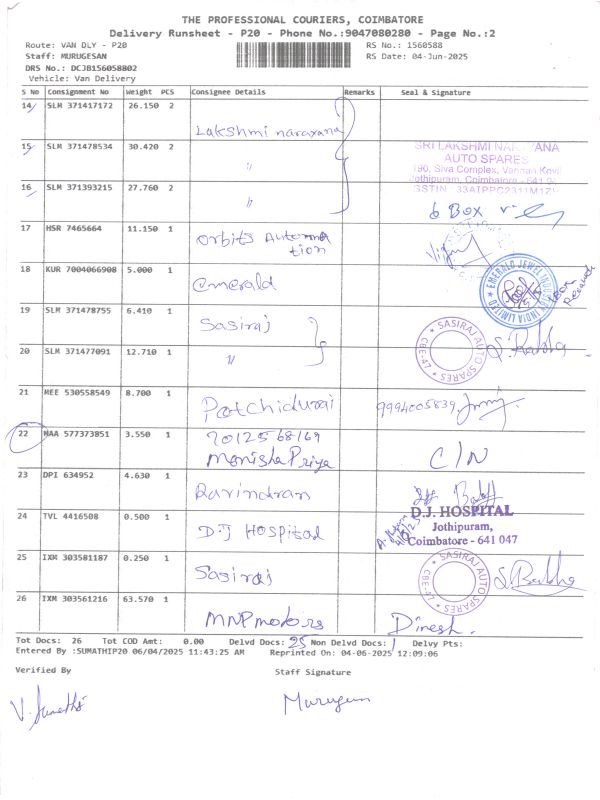 THE PROFESSIONAL COURIERS, COIMBATORE
Delivery Runsheet - P20 - Phone No.:9047080280 - Page No.:2
Route: VAN DLY - P20 RS No.: 1560588
Staff: MURUGESAN RS Date: 04-Jun-2025
DRS No.: DCJB156058802
Vehicle: Van Delivery
S No Consignment No Weight PCS Consignee Details Remarks Seal & Signature
14 SLM 371417172 26.150 2
Lakshmi narayana
15 SLM 371478534 30.420 2 SRI LAKSHMI NARAYANA
AUTO SPARES
〃 190, Siva Complex, Vannan Kovil
Jothipuram, Coimbatore - 641 0
16 SLM 371393215 27.760 2 GSTIN 33AIPPC2311M1Z
〃 6 Box
17 HSR 7465664 11.150 1
Orbits Automation
18 KUR 7004066908 5.000 1
emerald EMERALD JEWEL INDUSTRY INDIA LIMITED
19 SLM 371478755 6.410 1
Sasiraj SASIRAJ AUTO SPARES CBE-47
20 SLM 371477091 12.710 1
〃
21 MEE 530558549 8.700 1
Patchidurai 9994005839
22 MAA 577373851 3.550 1 7012568169
Monisha Priya C/N
23 DPI 634952 4.630 1
Ravindran
24 TVL 4416508 0.500 1 D.J. HOSPITAL
D.J Hospital Jothipuram,
Coimbatore - 641 047
25 IXM 303581187 0.250 1
Sasiraj SASIRAJ AUTO SPARES CBE-47
26 IXM 303561216 63.570 1
MNP motors Dinesh.
Tot Docs: 26 Tot COD Amt: 0.00 Delvd Docs: 25 Non Delvd Docs: 1 Delvy Pts:
Entered By :SUMATHIP20 06/04/2025 11:43:25 AM Reprinted On: 04-06-2025 12:09:06
Verified By Staff Signature
V. Sumathi Murugan